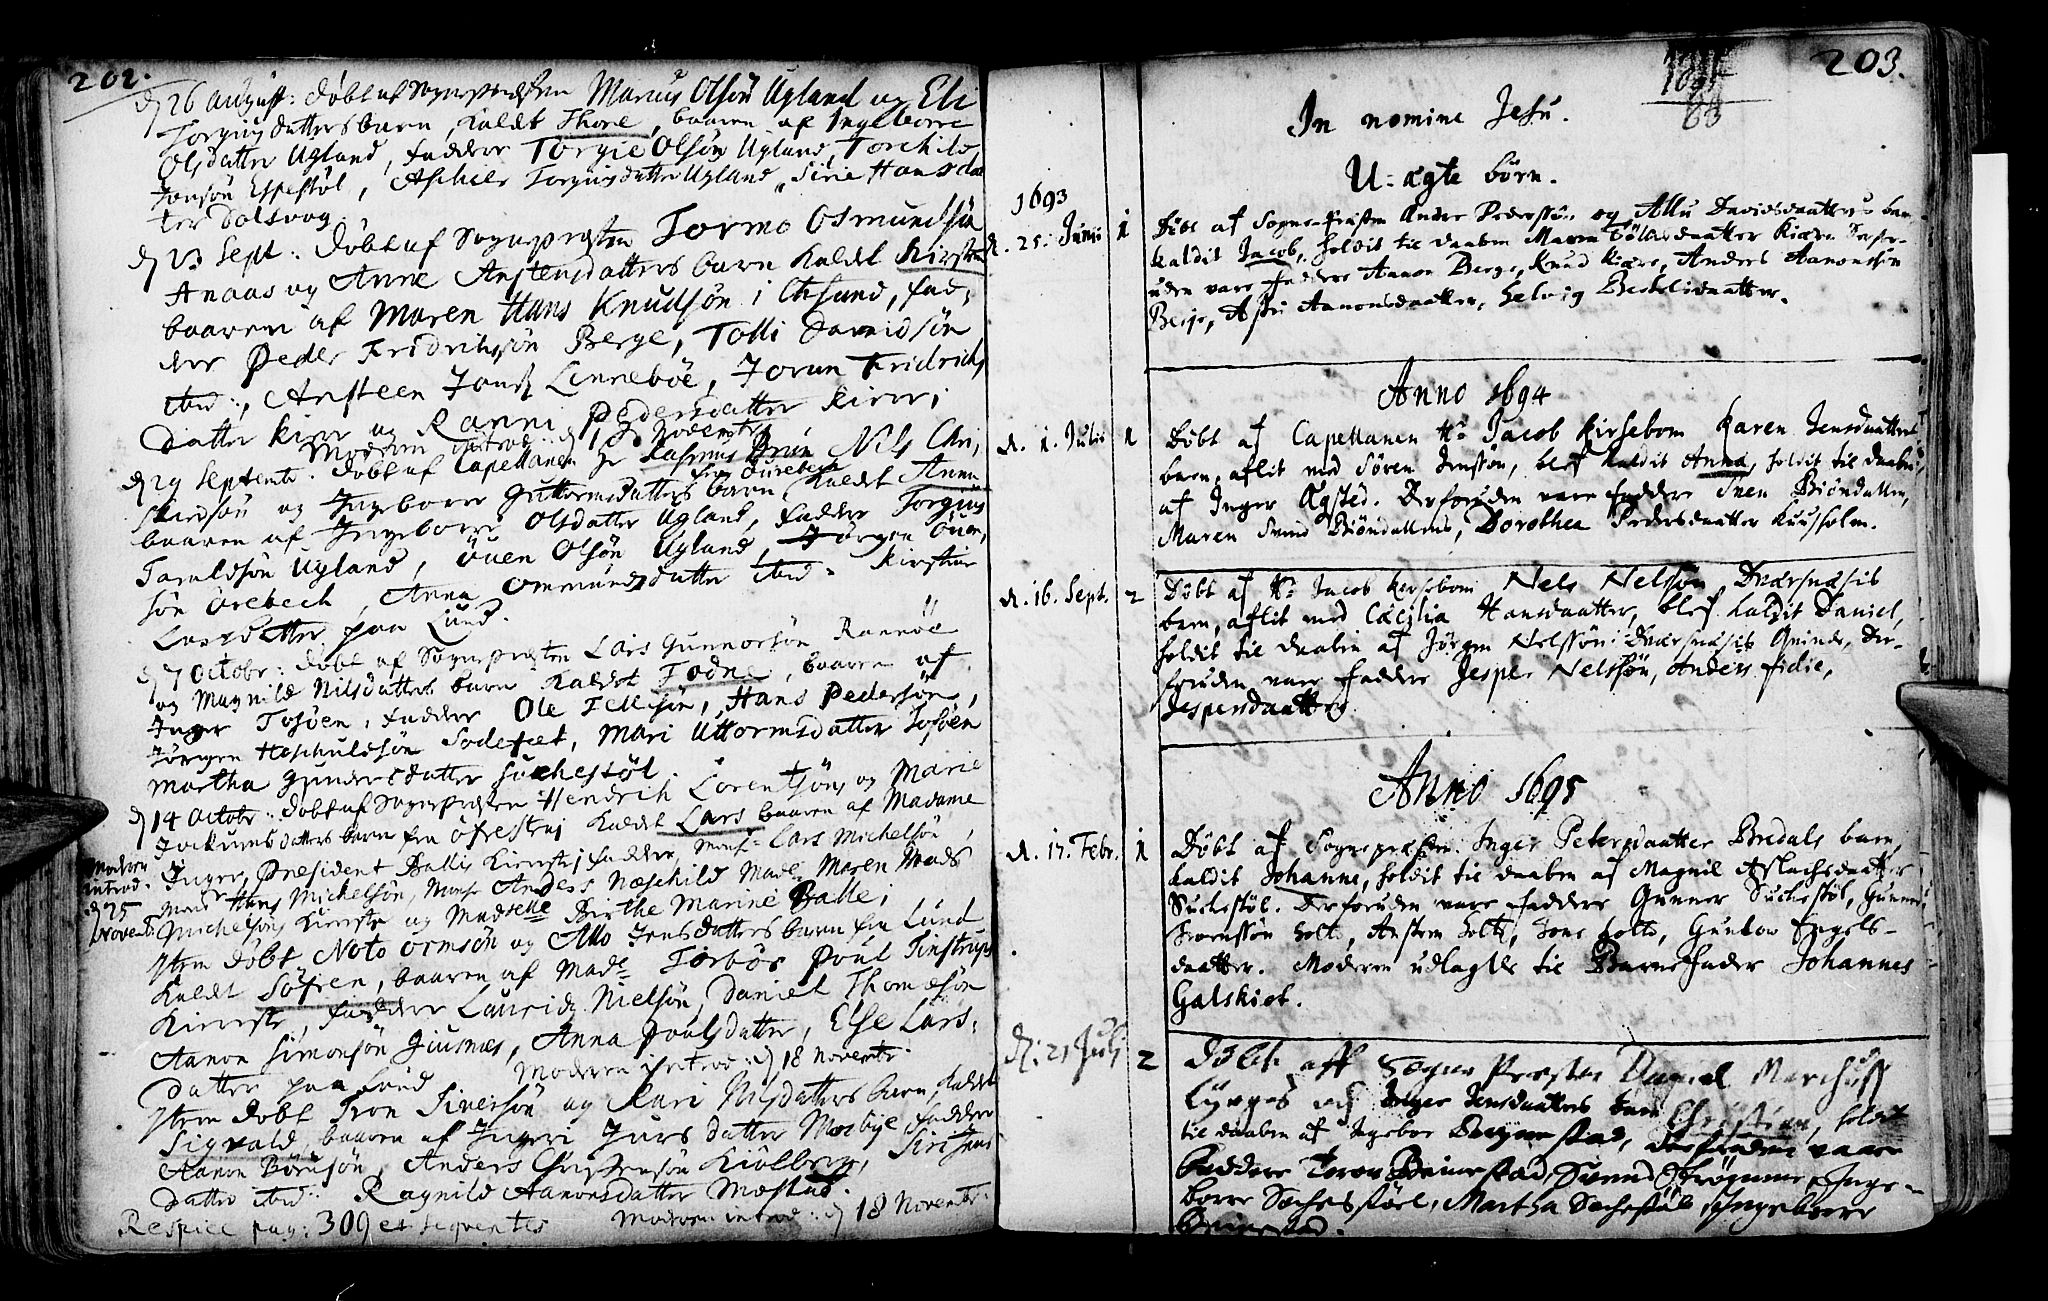 202.
d 26 August: döbt af Sognepresten Marcus Olsön Ugland og Eli
Torgiusdatters barn, kaldt Thore, baaren af Ingeborre
Olsdatter Ugland, faddere Torgie Olsön Ugland, Torchild
Jonsön Espestöl, Aschild Torgiusdatter Ugland, Sirie Hansdat
ter Dolsvog.
d 23 Sept: döbt af Sognepresten Tormo Osmundsön
Anaas og Anne Anstensdatters barn kaldt Kirsten
baaren af Maren Hans Knudsön i Chsand, fad,
der Peder Fridrichsön Berge, Tolli Davidsön
ibid:, Ansteen Jons Linneböe, Jorun Fridrichs
datter kier og Ranni Pedersdatter kier,
Moderen introd: d 18 Novembr
d 29 Septemb. döbt af Capellanen Hr Rasmus Brun Nils Chri,
fra öurebech
stensön og Ingeborre Guttormsdatters barn kaldt Anne
baaren af Ingeborre Olsdatter Ugland, fadder Torgius
Taraldsön Ugland, Öuen Olsön Ugland, Jörgen Öuen,
sön örebech, Anna Ommundsdatter ibid: Kirstine
Larsdatter paa Lund.
d 7 Octobr: döbt af Sognepresten Lars Gunnorsön Rannöe
og Magnild Nilsdatters barn kaldet Todne, baaren af
Inger Tosöen, faddere Ole Tellisön, Hans Pedersön,
Jörgen Heschuldsön Sodefiet, Mari Uttormsdatter Tosöen
Martha Gundersdatter Suchestöl.
d 14 Octobr: döbt af Sognepresten Hendrich Lorentsöns og Marie
Jochumsdatters barn fra öfrestrej kaldt Lars baaren af Madame
Inger, President Ballis Kiereste, faddere, Mons: Lars Michelsön,
Moderen
introd.
d 25
Novemb:
Mons Hans Mickelsön, Mons Anders Næschild Made Maren Mads
Michelsöns Kiereste og Madselle Birthe Marine Balle,
Item döbt Noto Ormsön og Allo Jensdatters barn fra Lund
kaldt Söfren, baaren af Made Torbör Poul Tinstrups
Kiereste, faddere Laurids Nielsön, Daniel Thomæsön
Aanon Simonsön Giusnes, Anna Poulsdatter, Else Lars,
datter paa Lund Moderen introd: d 18 Novembr
Item döbt Tron Sivertsön og Kari Nilsdatters barn, kaldt
Sigvald, baaren af Ingeri Jursdatter Mosbye, faddere
Aanon Börusön, Anders Christensön Kiölberg, Siri Jens
datter ibid: Ragnild Aanonsdatter Mæstad.
Moderen introd: d 18 Novembr:
Respice pag: 309 et seqventes
203.
In nomine Jesu.
U-ægte börn.
1693
d. 25. Junii 1
Döbt af Sogne-Presten Ander Pedersöns og Allu Davidsdaatters barn
kaldit Jacob, holdit til daaben Maren Tölesdaatter Kiære Desfor-
uden vare faddere Aanon Berge, Knud Kiære, Anders Aanonssön
Berge, Assu Aanonsdaatter, Helvig Bertelsdaatter.
Anno 1694
d. 1. Julii 1
Döbt af Capellanen Hr Jacob Kirsebom Karen Jensdaatters
barn aflit med Sören Jensön, blef kaldit Anna, holdit til daaben
af Inger Agsted. Derforuden vare faddere Sven Biöndallen,
Maren Svend Biöndallens, Dorothea Pedersdaatter Kuusholm.
d. 16. Sept. 2
Döbt af Hr Jacob Kirsebom Nels Nelssön Dværsnæsis
barn, aflit med Cæcilia Hansdaatter, blef kaldit Daniel,
holdit til daaben af Jörgen Nelssön Dværsnæsis Qvinde, Der-
foruden vare faddere Jesper Nelssön, Anders Fidie,
Jespersdaatter.
Anno 1695
d. 17. Febr. 1
Döbt af Sognepresten: Inger Petersdaatter Bredals barn,
kaldit Johanne, holdit til daaben af Magnil Aslachsdaatter
Suchestöl. Derforuden vare faddere Gunner Suchestöl, Gunner
Svenssön Holte, Ansten Holte, Tone Holte, Gunlov Engels-
daatter. Moderen udlagde til Barnefader Johannes
Galskiot.
d: 21 Julj 2
Döbt aff Sogne Presten Daniel Marchuss
Lÿnges och Inger Jensdaatters barn Christian, holdit
til daaben af Ingebor Beignestad, desforuden vaare
Faddere Toron Beinestad, Svend Strömme, Inge-
borre Sochesstöel, Martha Sochestöel, Ingeborre
Beinestad.